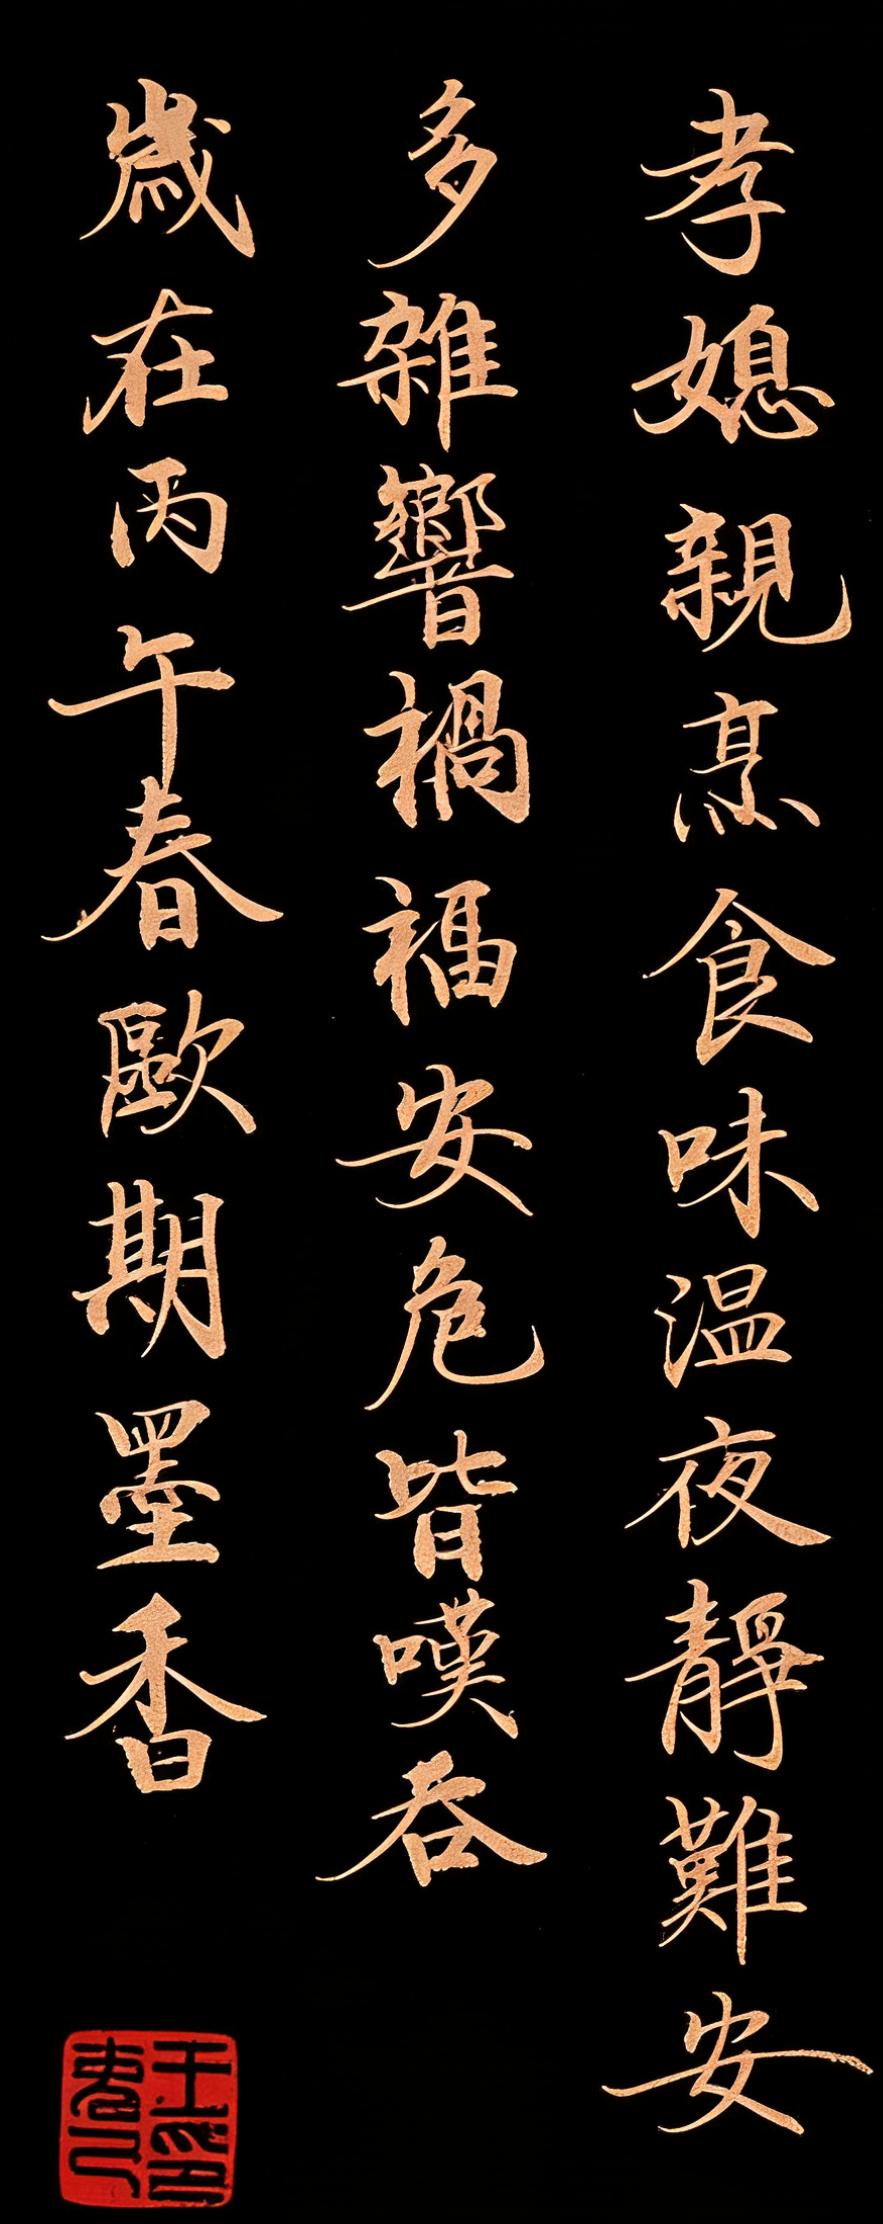 孝媳親烹食味温夜靜難安
多雜響禍福安危皆嘆吞
歲在丙午春歐期墨香